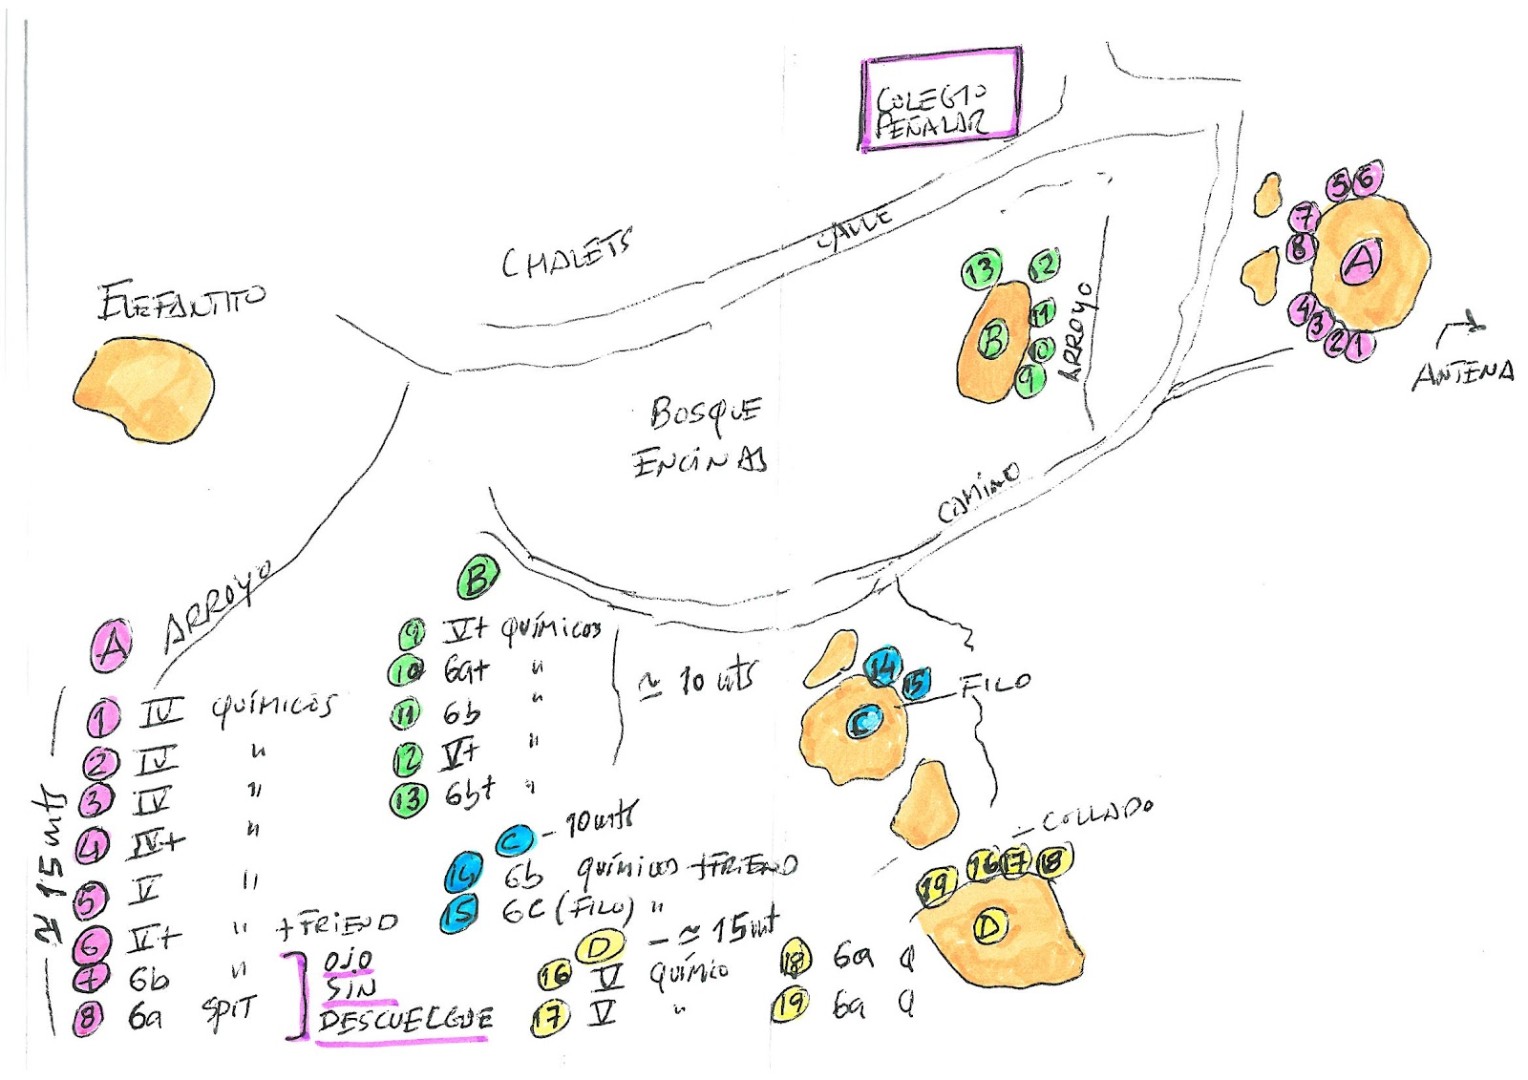 COLEGIO
PEÑALAR
CHALETS
CALLE
ELEFANTITO
5 6
7
8
A
4
3
2 1
ANTENA
13 12
11
B
10
9
ARROYO
BOSQUE
ENCINAS
CAMINO
ARROYO
14
15
FILO
C
COLLADO
19 16 17 18
D
A
≃ 15 mts
1 IV QUÍMICOS
2 IV "
3 IV "
4 IV+ "
5 V "
6 V+ " + FRIEND
7 6b "
8 6a SPIT
OJO
SIN
DESCUELGUE
B
9 V+ QUÍMICOS
10 6a+ "
11 6b "
12 V+ "
13 6b+ "
≃ 10 mts
C - 10 mts
14 6b QUÍMICOS + FRIEND
15 6c (FILO) "
D - ≃ 15 mt
16 V QUÍMICO
17 V "
18 6a Q
19 6a Q